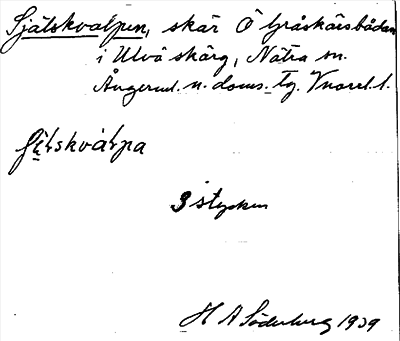 Sjätskvalpen, skär Ö Gråskärsbådan
i Ulvö skärg, Nätra sn.
Ångerml. n. doms. tg. Vnorrl. l.
3 stycken
H A Söderberg 1939